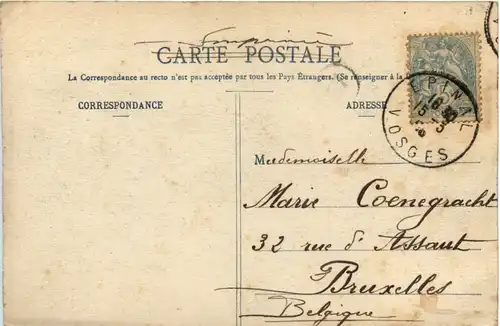 Imprimé
CARTE POSTALE
La Correspondance au recto n'est pas acceptée par tous les Pays Étrangers. (Se renseigner à la
CORRESPONDANCE
ADRESSE
EPINAL
VOSGES
Mademoiselle
Marie Coenegracht
32 rue d'Assaut
Bruxelles
Belgique